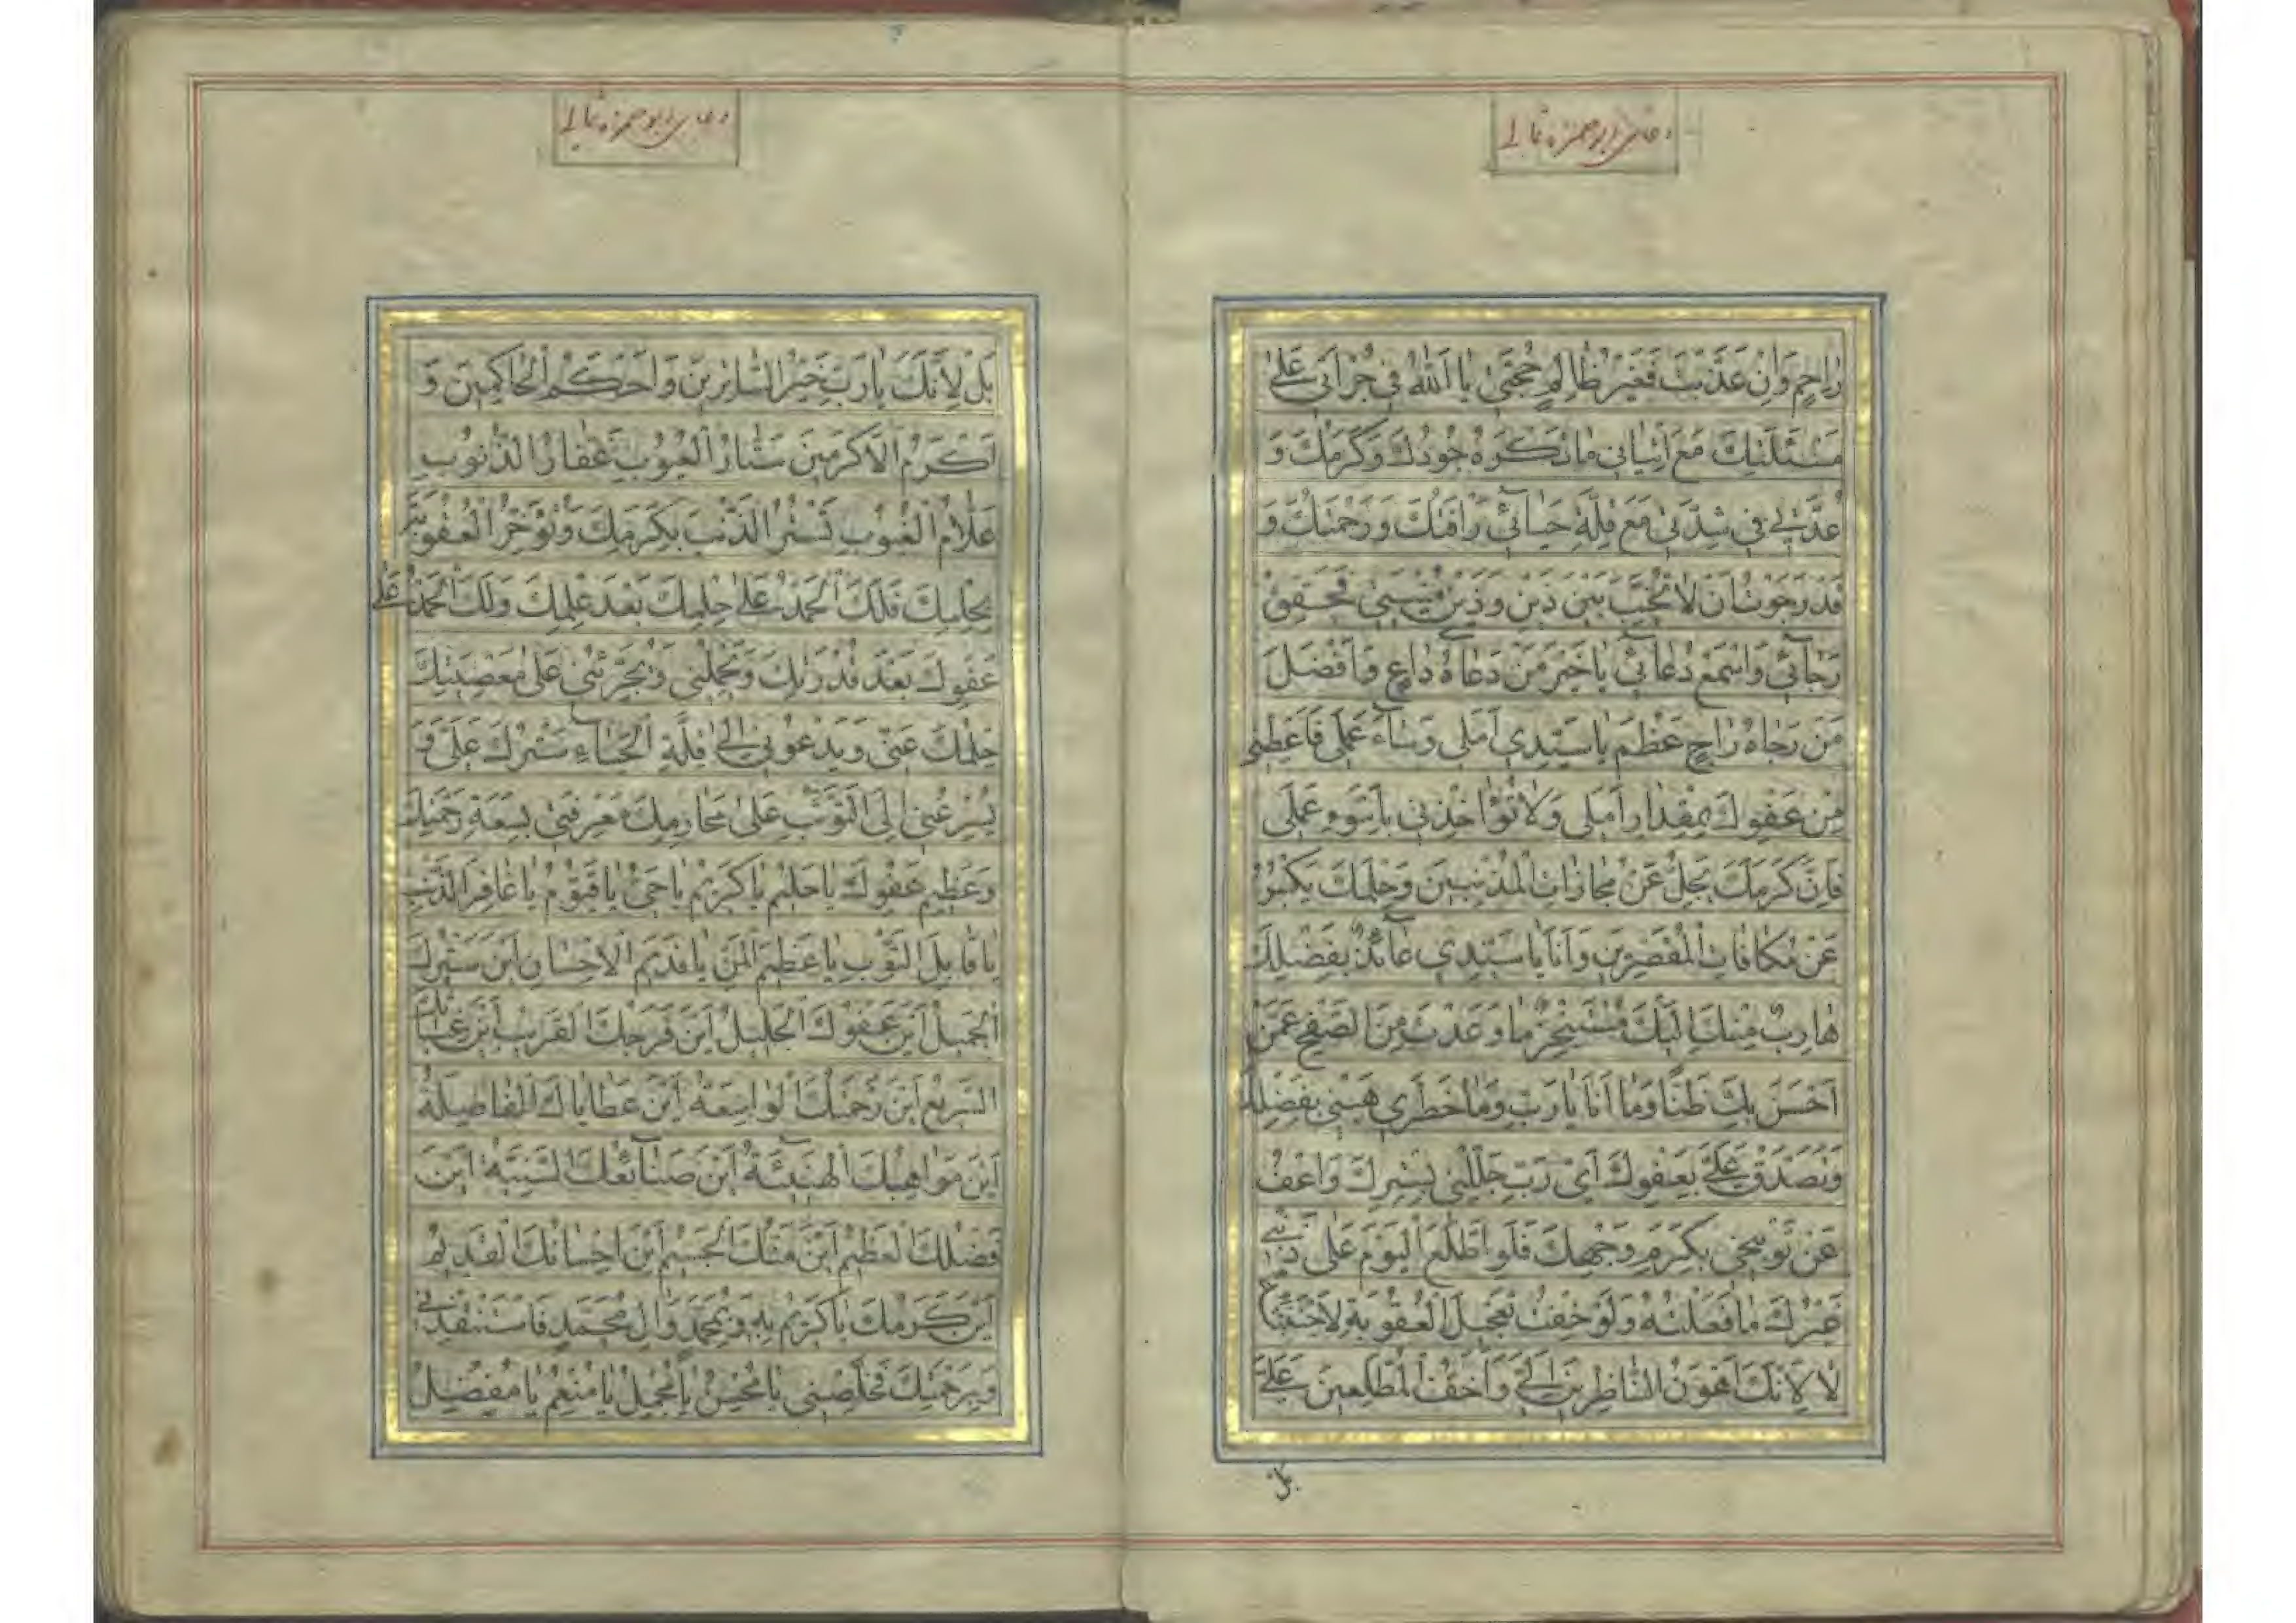 دعای ابوحمزه ثمالی
رَاحِمٍ وَاِنْ عَذَّبْتَ فَغَيْرُ ظَالِمٍ حُجَّتِى يَا اَللّٰهُ فِى جُرْاَتِى عَلٰى
مَسْئَلَتِكَ مَعَ اِتْيَانِى مَا تَكْرَهُ جُودُكَ وَكَرَمُكَ وَ
عُدَّتِى فِى شِدَّتِى مَعَ قِلَّةِ حَيَائِى رَافَتُكَ وَرَحْمَتُكَ وَ
قَدْ رَجَوْتُ اَنْ لَا تُخَيِّبَ بَيْنَ ذَيْنِ وَذَيْنِ مُنْيَتِى فَحَقِّقْ
رَجَائِى وَاسْمَعْ دُعَائِى يَا خَيْرَ مَنْ دَعَاهُ دَاعٍ وَاَفْضَلَ
مَنْ رَجَاهُ رَاجٍ عَظُمَ يَا سَيِّدِى اَمَلِى وَسَاءَ عَمَلِى فَاَعْطِنِى
مِنْ عَفْوِكَ بِمِقْدَارِ اَمَلِى وَلَا تُؤَاخِذْنِى بِاَسْوَءِ عَمَلِى
فَاِنَّ كَرَمَكَ يَجِلُّ عَنْ مُجَازَاتِ الْمُذْنِبِينَ وَحِلْمَكَ يَكْبُرُ
عَنْ مُكَافَاتِ الْمُقَصِّرِينَ وَاَنَا يَا سَيِّدِى عَائِذٌ بِفَضْلِكَ
هَارِبٌ مِنْكَ اِلَيْكَ مُتَنَجِّزٌ مَا وَعَدْتَ مِنَ الصَّفْحِ عَمَّنْ
اَحْسَنَ بِكَ ظَنًّا وَمَا اَنَا يَا رَبِّ وَمَا خَطَرِى هَبْنِى بِفَضْلِكَ
وَتَصَدَّقْ عَلَىَّ بِعَفْوِكَ اَىْ رَبِّ جَلِّلْنِى بِسِتْرِكَ وَاعْفُ
عَنْ تَوْبِيخِى بِكَرَمِ وَجْهِكَ فَلَوِ اطَّلَعَ الْيَوْمَ عَلٰى ذَنْبِى
غَيْرُكَ مَا فَعَلْتُهُ وَلَوْ خِفْتُ تَعْجِيلَ الْعُقُوبَةِ لَاجْتَنَبْتُهُ
لَا لِاَنَّكَ اَهْوَنُ النَّاظِرِينَ اِلَىَّ وَاَخَفُّ الْمُطَّلِعِينَ عَلَىَّ
بل
دعای ابوحمزه ثمالی
بَلْ لِاَنَّكَ يَا رَبِّ خَيْرُ السَّاتِرِينَ وَاَحْكَمُ الْحَاكِمِينَ وَ
اَكْرَمُ الْاَكْرَمِينَ سَتَّارُ الْعُيُوبِ غَفَّارُ الذُّنُوبِ
عَلَّامُ الْغُيُوبِ تَسْتُرُ الذَّنْبَ بِكَرَمِكَ وَتُؤَخِّرُ الْعُقُوبَةَ
بِحِلْمِكَ فَلَكَ الْحَمْدُ عَلٰى حِلْمِكَ بَعْدَ عِلْمِكَ وَلَكَ الْحَمْدُ عَلٰى
عَفْوِكَ بَعْدَ قُدْرَتِكَ وَيَحْمِلُنِى وَيُجَرِّئُنِى عَلٰى مَعْصِيَتِكَ
حِلْمُكَ عَنِّى وَيَدْعُونِى اِلٰى قِلَّةِ الْحَيَاءِ سَتْرُكَ عَلَىَّ وَ
يُسْرِعُنِى اِلَى التَّوَثُّبِ عَلٰى مَحَارِمِكَ مَعْرِفَتِى بِسَعَةِ رَحْمَتِكَ
وَعَظِيمِ عَفْوِكَ يَا حَلِيمُ يَا كَرِيمُ يَا حَىُّ يَا قَيُّومُ يَا غَافِرَ الذَّنْبِ
يَا قَابِلَ التَّوْبِ يَا عَظِيمَ الْمَنِّ يَا قَدِيمَ الْاِحْسَانِ اَيْنَ سَتْرُكَ
الْجَمِيلُ اَيْنَ عَفْوُكَ الْجَلِيلُ اَيْنَ فَرَجُكَ الْقَرِيبُ اَيْنَ غِيَاثُكَ
السَّرِيعُ اَيْنَ رَحْمَتُكَ الْوَاسِعَةُ اَيْنَ عَطَايَاكَ الْفَاضِلَةُ
اَيْنَ مَوَاهِبُكَ الْهَنِيئَةُ اَيْنَ صَنَائِعُكَ السَّنِيَّةُ اَيْنَ
فَضْلُكَ الْعَظِيمُ اَيْنَ مَنُّكَ الْجَسِيمُ اَيْنَ اِحْسَانُكَ الْقَدِيمُ
اَيْنَ كَرَمُكَ يَا كَرِيمُ بِهِ وَبِمُحَمَّدٍ وَاٰلِ مُحَمَّدٍ فَاسْتَنْقِذْنِى
وَبِرَحْمَتِكَ فَخَلِّصْنِى يَا مُحْسِنُ يَا مُجْمِلُ يَا مُنْعِمُ يَا مُفْضِلُ